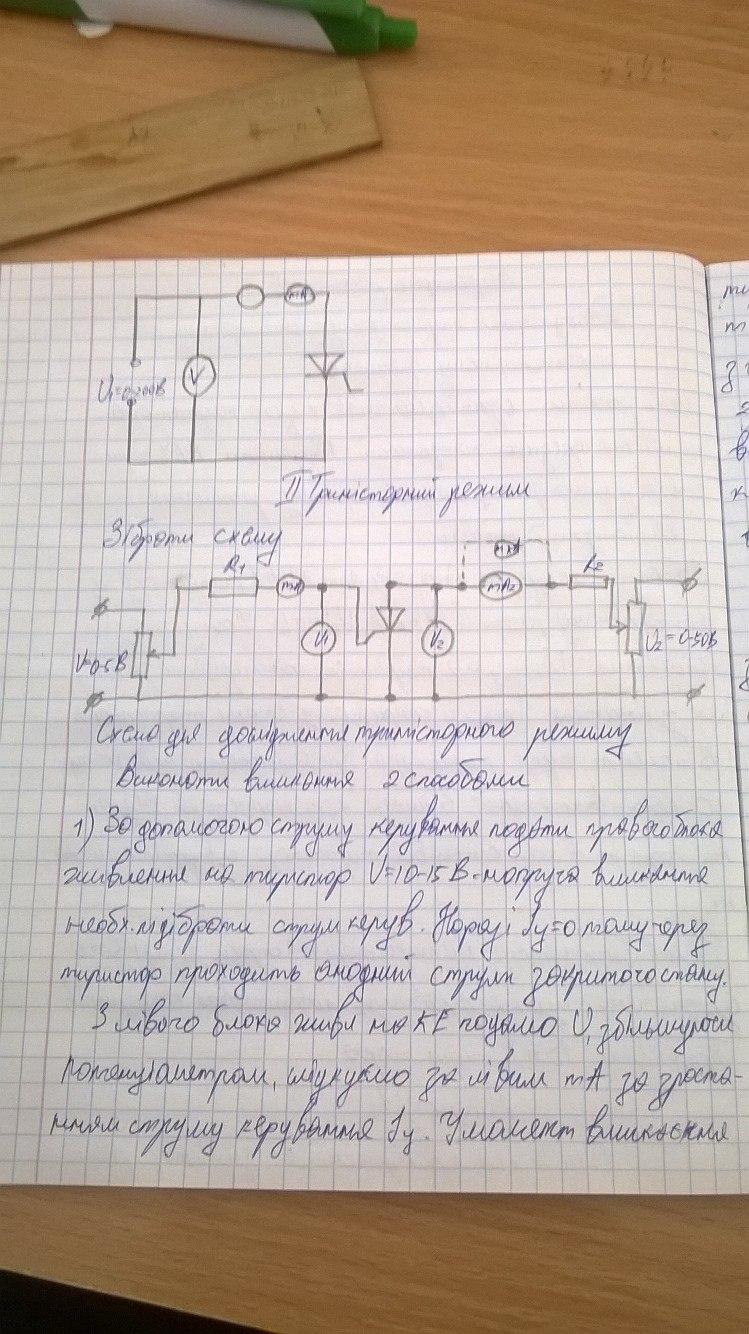 mA
U₁=0-200В
V
II Триністорний режим
Зібрати схему
R₁ mA mA₂ R₂
U=0-5В V₁ V₂ U₂=0-50В
Схема для дослідження триністорного режиму
Виконати вмикання 2 способами
1) За допомогою струму керування подати правого блока
живлення на тиристор U=10-15В-напруга вмикання
необх. підібрати струм керув. Наразі Iу=0 тому через
тиристор проходить анодний струм закритого стану.
З лівого блока живл на КЕ подамо U,
потенціометром, слідкуємо за лівим mA за зроста-
нням струму керування Iу. У момент вмикання